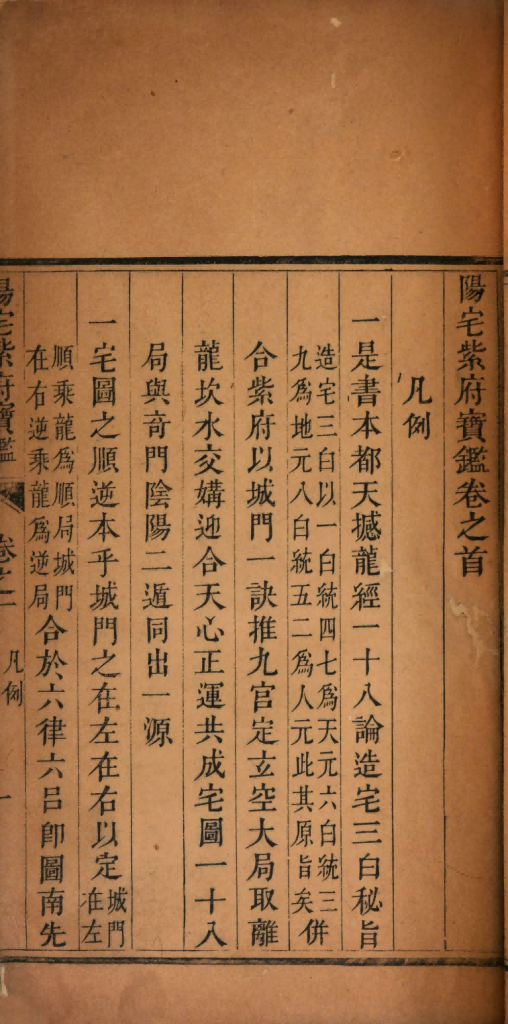 陽宅紫府寶鑑卷之首
凡例
一是書本都天撼龍經一十八論造宅三白秘旨
造宅三白以一白統四七爲天元六白統三
九爲地元八白統五二爲人元此其原旨矣併
合紫府以城門一訣推九官定玄空大局取離
龍坎水交媾迎合天心正運共成宅圖一十八
局與奇門陰陽二遁同出一源
一宅圖之順逆本乎城門之在左在右以定城門在左
順乘龍爲順局城門
在右逆乘龍爲逆局合於六律六呂卽圖南先
陽宅紫府寶鑑
卷之
凡例
一